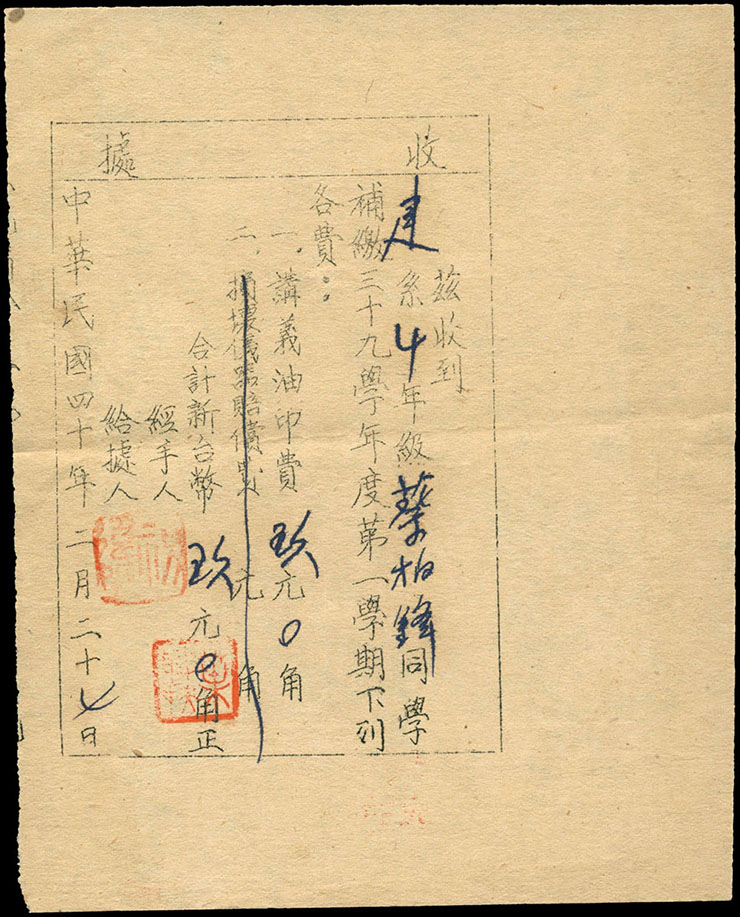 收據
茲收到
建系4年級蔡柏鋒同學
補繳三十九學年度第一學期下列
各費：
一、講義油印費玖元0角
二、損壞儀器賠償費 元 角
合計新台幣玖元0角正
經手人
給據人
中華民國四十年二月二十七日